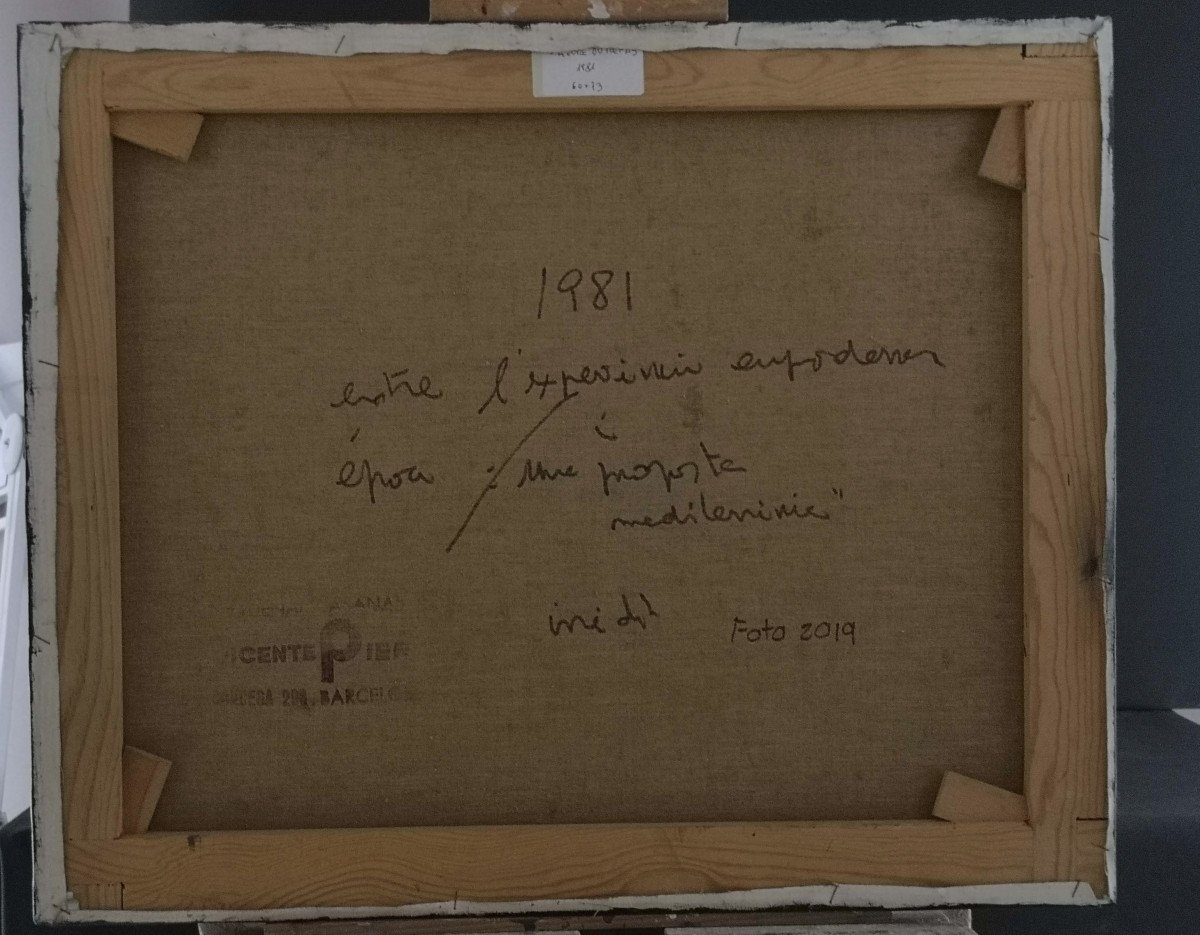 1981
60x73
1981
entre l'experiència
i
época : una proposta
mediterrània"
inèdit
Foto 2019
ANA
ICENTE PIER
BARCELO